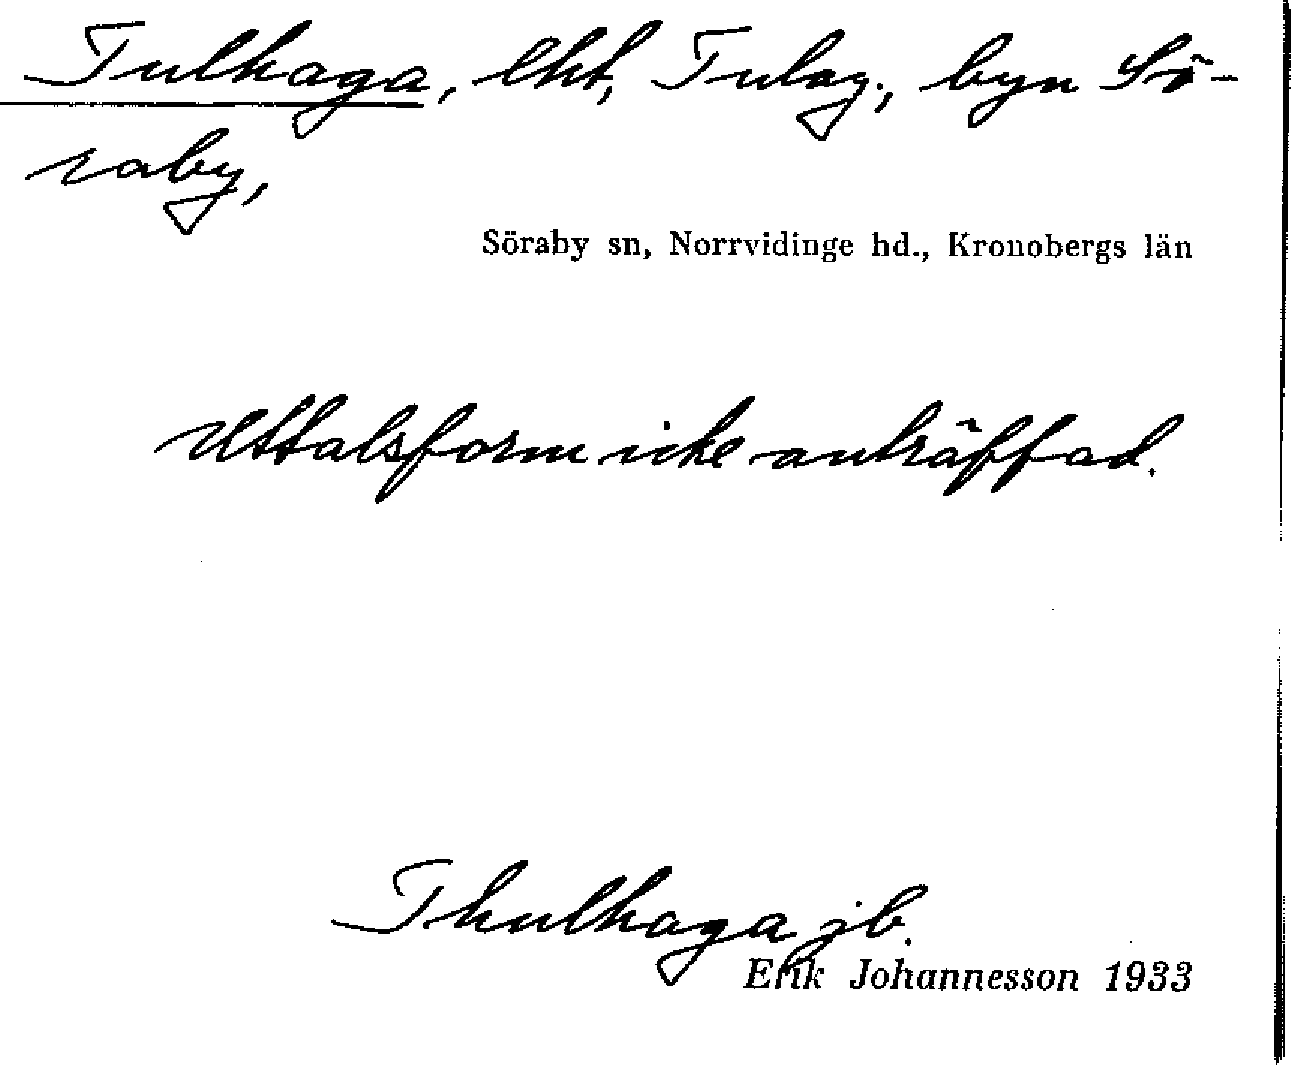 Tulhaga, lht, Tulag., byn Sö-
raby,
Söraby sn, Norrvidinge hd., Kronobergs län
Uttalsform icke anträffad.
Thulhaga jb.
Erik Johannesson 1933